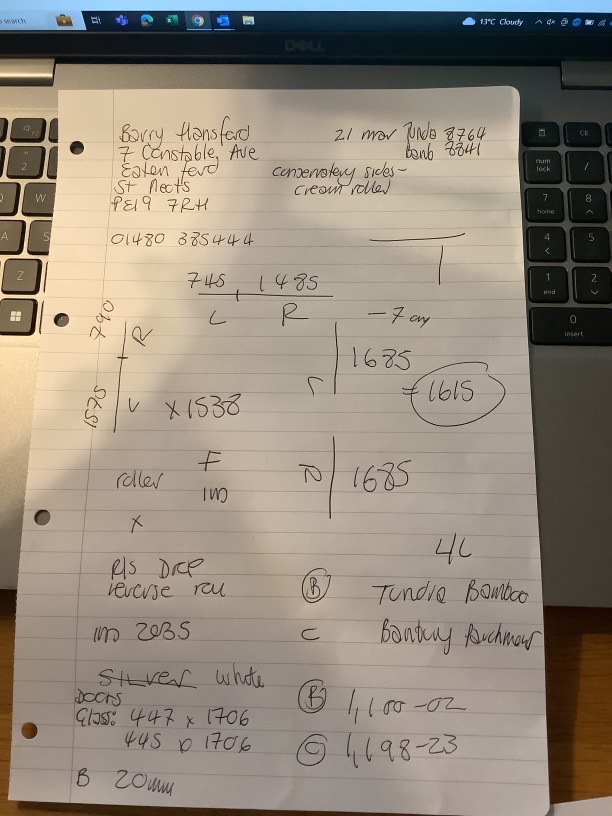 search
13°C Cloudy
DELL
Barry Hansford
7 Constable Ave
Eaton ford
St Neots
PE19 7RH
01480 385444
21 mar Tundra 8764
banb 8841
conservatory sides -
cream roller
745 1485
L R
- 7 cm
790 R
1575 L x 1538
L 1685
= 1615
R 1685
roller F
im
x
4L
R/S Drop
reverse roll
im 2035
B Tundra Bamboo
C Bantury Parchment
SILVER white
Doors
Glass: 447 x 1706
445 D 1706
B 20mm
B 1,100-02
C 1,198-23